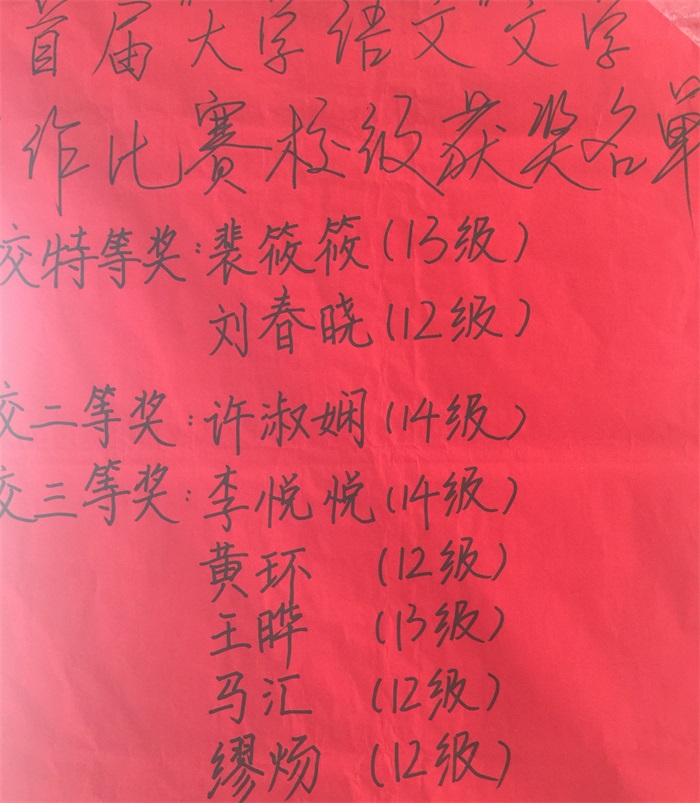 首届"大学语文"文学
作比赛校级获奖名单
校特等奖:裴筱筱(13级)
刘春晓(12级)
校二等奖:许淑娴(14级)
校三等奖:李悦悦(14级)
黄环 (12级)
王晔 (13级)
马汇 (12级)
缪炀 (12级)